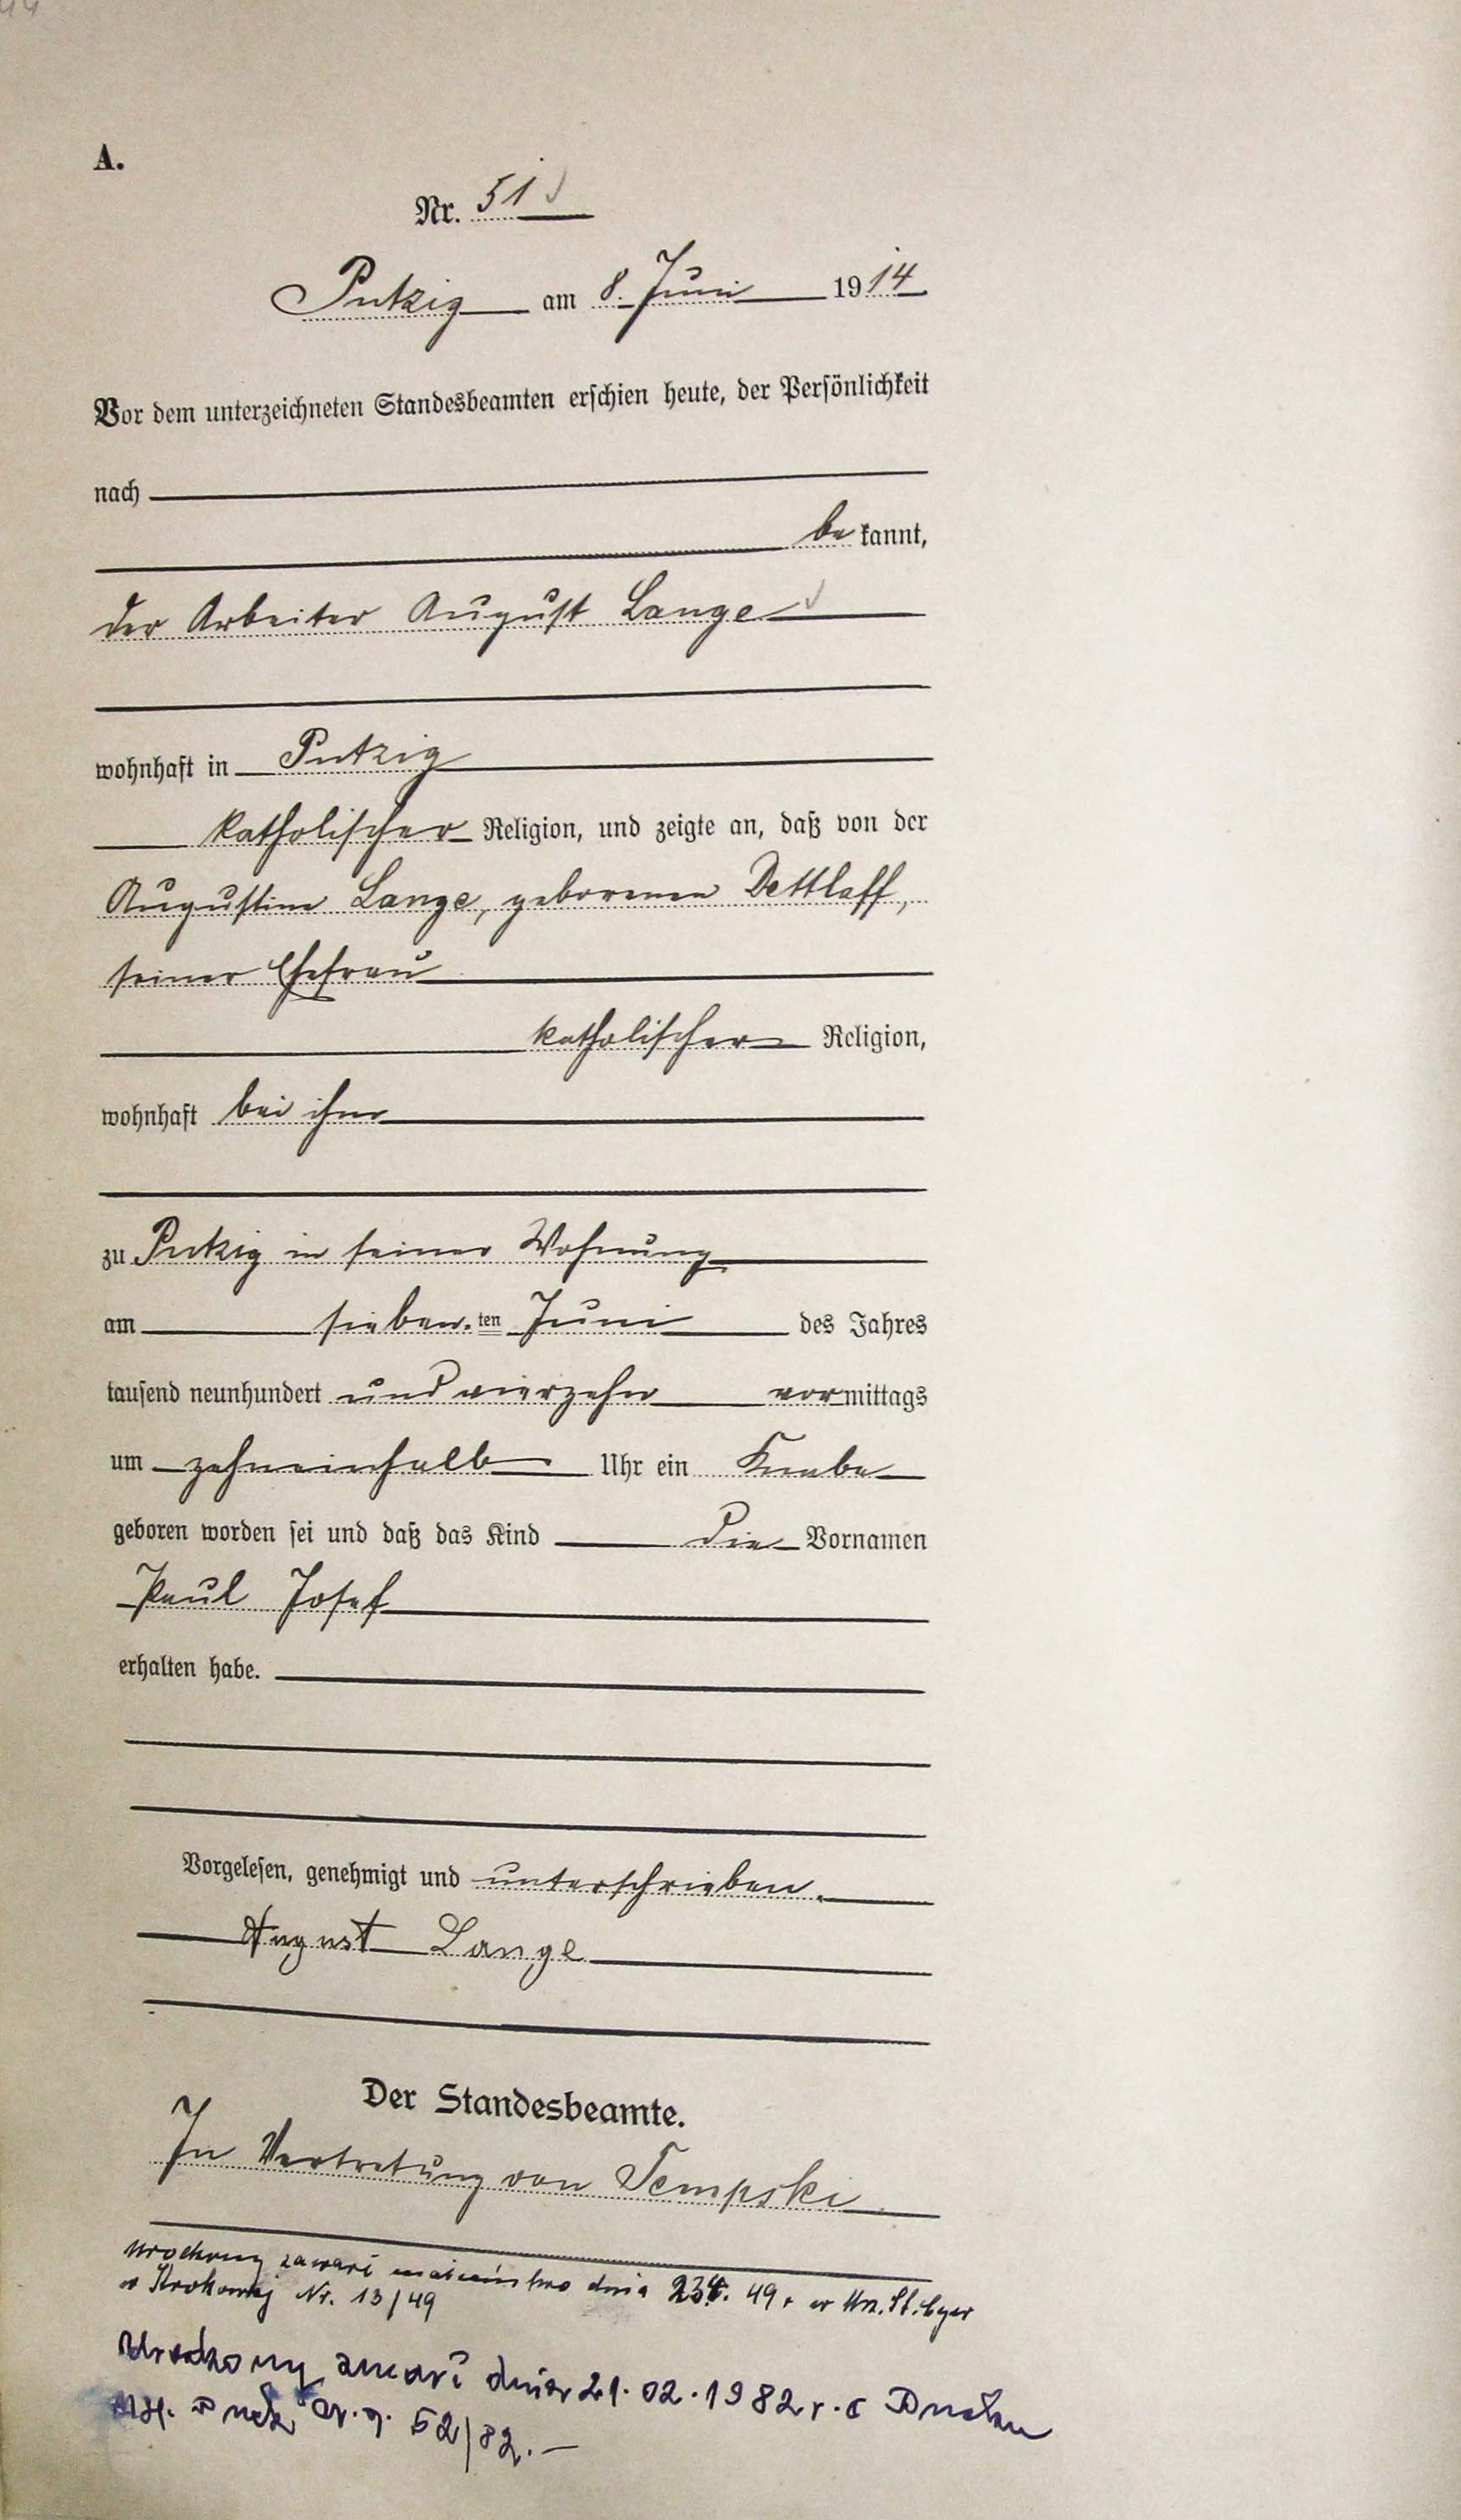 44
A.
Nr. 51
Putzig am 8. Juni 1914
Vor dem unterzeichneten Standesbeamten erschien heute, der Persönlichkeit
nach
be kannt,
der Arbeiter August Lange
wohnhaft in Putzig
katholischer Religion, und zeigte an, daß von der
Augustine Lange, geborenen Dettlaff,
seiner Ehefrau
katholischer Religion,
wohnhaft bei ihm
zu Putzig in seiner Wohnung
am sieben ten Juni des Jahres
tausend neunhundert und vierzehn vormittags
um zehneinhalb Uhr ein Knabe
geboren worden sei und daß das Kind die Vornamen
Paul Josef
erhalten habe.
Vorgelesen, genehmigt und unterschrieben.
August Lange
Der Standesbeamte.
In Vertretung von Tempski
Urodzony zawarł małżeństwo dnia 49 r w Urz. St. Cyw
w Krokowej Nr. 13/49
Urodzony zmarł dnia 21.02.1982 r.
52/82.-